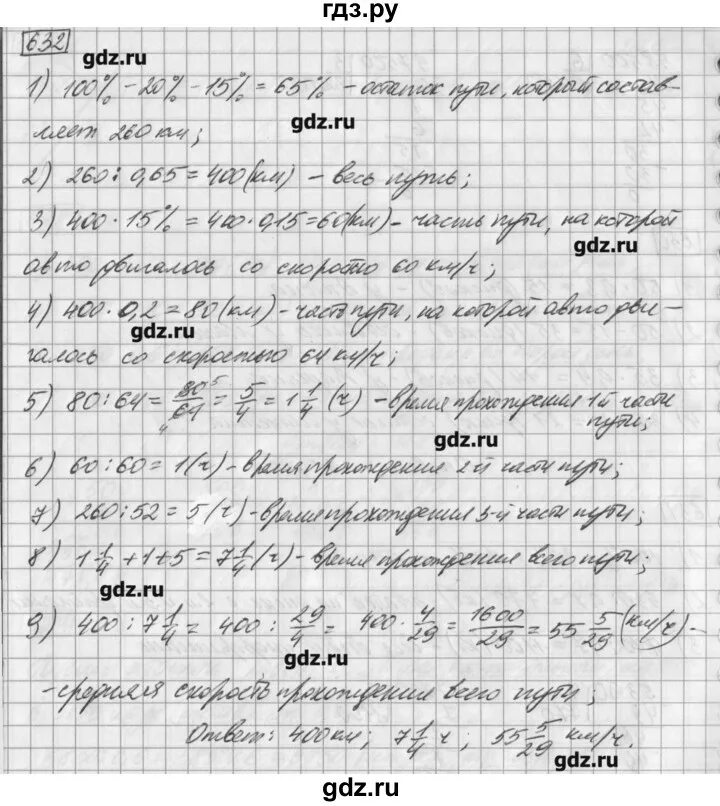 гдз.ру
632
gdz.ru
1) 100% - 20% - 15% = 65% - остаток пути, который состав-
gdz.ru
ляет 260 км;
2) 260 : 0,65 = 400 (км) - весь путь;
3) 400 · 15% = 400 · 0,15 = 60 (км) - часть пути, на которой
gdz.ru
авто двигалось со скоростью 60 км/ч;
4) 400 · 0,2 = 80 (км) - часть пути, на которой авто дви-
gdz.ru
галось со скоростью 64 км/ч;
5) 80 : 64 = 80/64 = 5/4 = 1 1/4 (ч) - время прохождения 1й части
пути;
gdz.ru
6) 60 : 60 = 1 (ч) - время прохождения 2-й части пути;
7) 260 : 52 = 5 (ч) - время прохождения 3-й части пути;
8) 1 1/4 + 1 + 5 = 7 1/4 (ч) - время прохождения всего пути;
gdz.ru
9) 400 : 7 1/4 = 400 : 29/4 = 400 · 4/29 = 1600/29 = 55 5/29 (км/ч) -
gdz.ru
- средняя скорость прохождения всего пути;
Ответ: 400 км; 7 1/4 ч; 55 5/29 км/ч.
gdz.ru
gdz.ru